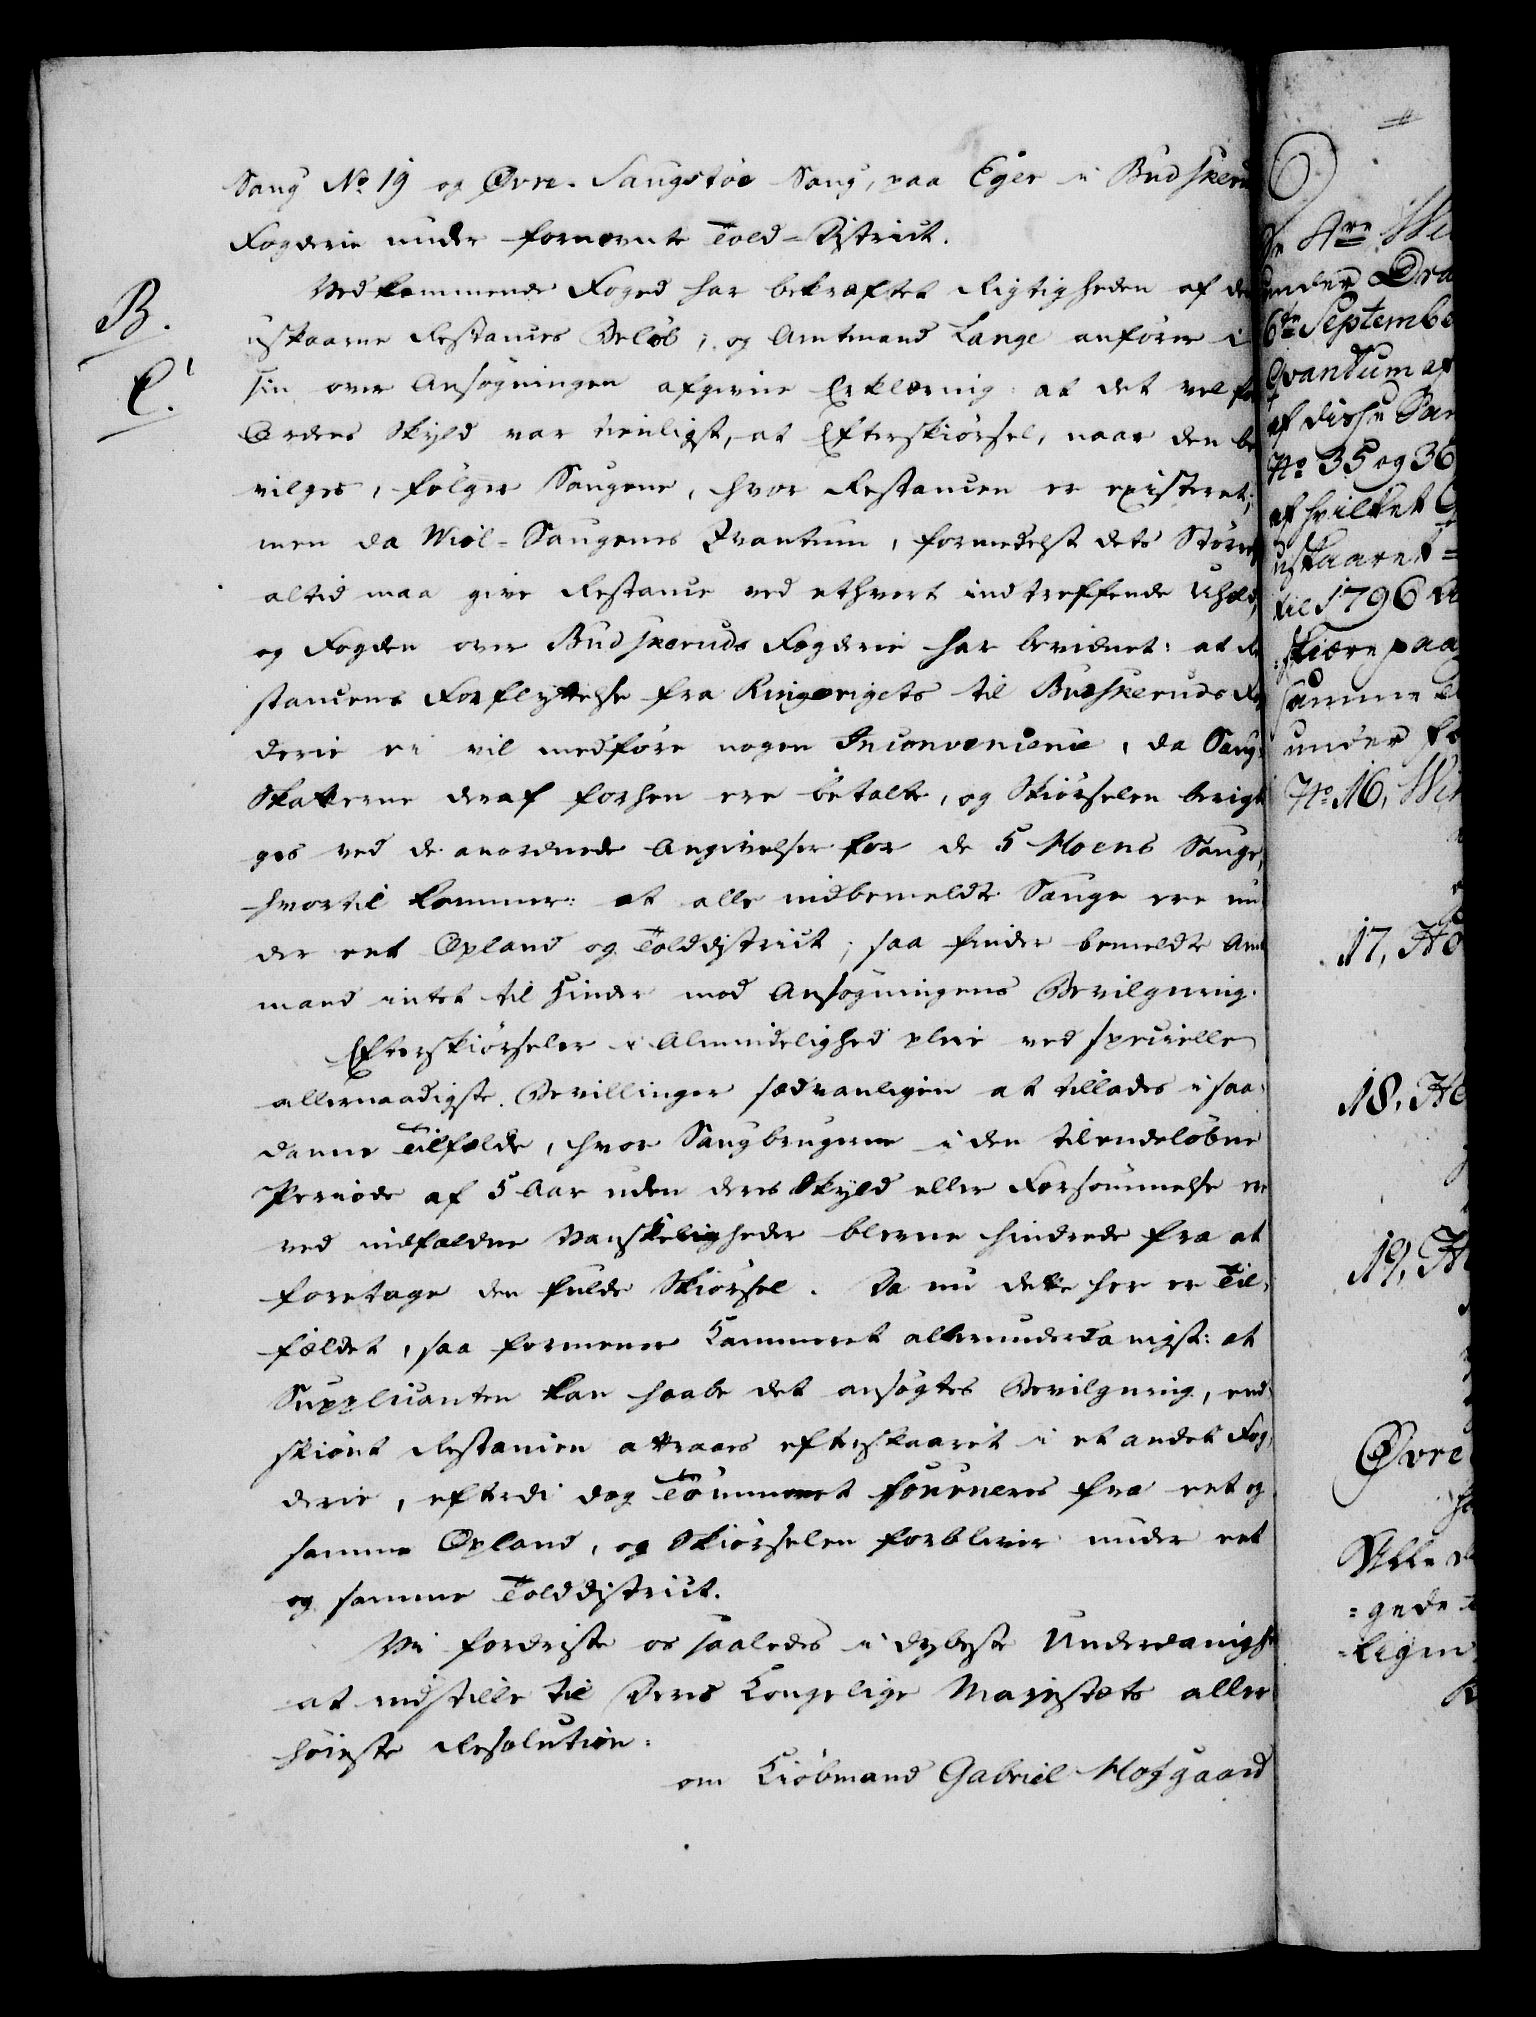 Saug No 19 og Øvre-Saugstøe Saug, paa Eger i Budskeru
Fogderie under fornævnte Told-District.
B.
C.
Vedkommende Foged har bekræftet Rigtigheden af de
uskaarne Restances Beløb; og Amtmand Lange anfører i
sin over Ansøgningen afgivne Erklæring: at det vel for
Ordens Skyld var tienligst, at Efterskiørsel, naar den be
vilges, følger Saugene, hvor Restancen er existeret;
men da Viol-Saugenes Qvantum, formedelst dets Større
altid maa give Restance ved ethvert indtreffende Uheld,
og Fogden over Budskeruds Fogderie har bevidnet: at Re
stancens Forflyttelse fra Ringerigets til Budskeruds Fog
derie ei vil medføre nogen Inconvenience, da Saug-
Skatterne deraf forhen ere betalte, og Skiørselen berigti
ges ved de anordnede Angivelser for de 5 Moens Sauge,
hvortil kommer: at alle nidbemeldte Sauge ere un
der eet Opland og Tolddistrict; saa finder bemeldte Amt
mand intet til Hinder mod Ansøgningens Bevilgning.
Efterskiørseler i Almindelighed pleie ved specielle
allernaadigste Bevillinger sædvanligen at tillades i saa-
danne Tilfælde, hvor Saugbrugerne i den tilendeløbne
Periode af 5 Aar uden deres Skyld eller Forsømmelse ere
ved indfaldne Vanskeligheder blevne hindrede fra at
foretage den fulde Skiørsel. Da nu dette her er Til-
fældet, saa formener Kammeret allerunderdanigst: at
Supplicanten kan haabe det ansøgtes Bevilgning, end-
skiønt Restancen attraaes efterskaaret i et andet Fog-
derie, efterdi dog Tømmeret fourneres fra eet og
samme Opland, og Skiørselen forbliver under eet
og samme Tolddistrict.
Vi fordriste os saaledes i dybeste Underdanighe
at indstille til Deres Kongelige Majestæts aller
høieste Resolution:
om Kiøbmand Gabriel Hofgaard
4re
under Dra
6te Septembe
Qvantum af
af disse
No 35 og 36
af hvilket
uskaaret =
til 1796
skiære paa
samme
under
No 16,
17, Ho
18, He
19, H
Øvre
Alle
= gede
=ligen